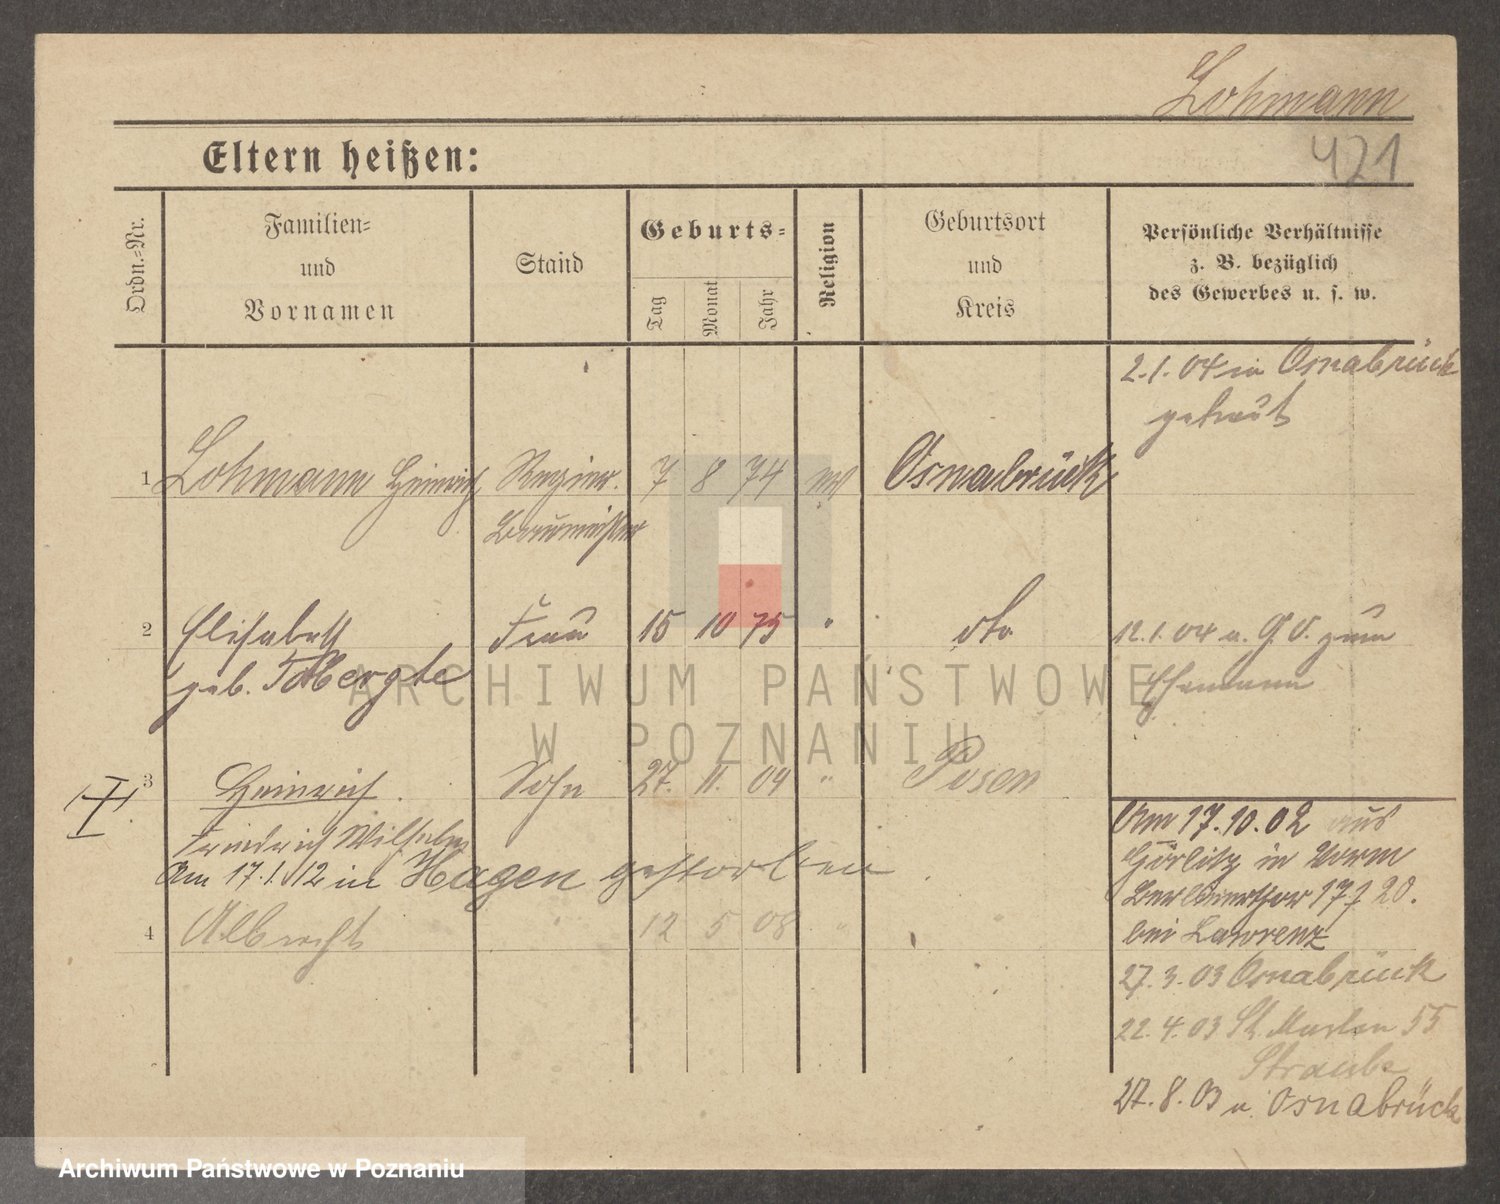 Lohmann
421
Eltern heißen:
Ordn.-Nr.
Familien-
und
Vornamen
Stand
Geburts-
Tag
Monat
Jahr
Religion
Geburtsort
und
Kreis
Persönliche Verhältnisse
z. B. bezüglich
des Gewerbes u. s. w.
2.1.04 in Osnabrück
getraut
1 Lohmann Heinrich Regier. 7 8 74 ev Osnabrück
Baumeister
2 Elisabeth Frau 15 10 75 " dto. 12.1.04 a. O. zum
geb. Ehemann
3 Heinrich. Sohn 27. 11. 04 " Posen
Friedrich Wilhelm
Am 17.1.12 in Hagen gestorben.
4 Albrecht 12 5 08 "
Am 17.10.02 aus
Görlitz in Vorm
Berlinerthor 17 20.
bei Lawrenz
27.3.03 Osnabrück
22.4.03 St. Martin 55
Straube
27.8.03 n. Osnabrück
ARCHIWUM PAŃSTWOWE
W POZNANIU
Archiwum Państwowe w Poznaniu